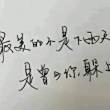 最美的不是下雨天
是曾与你躲过